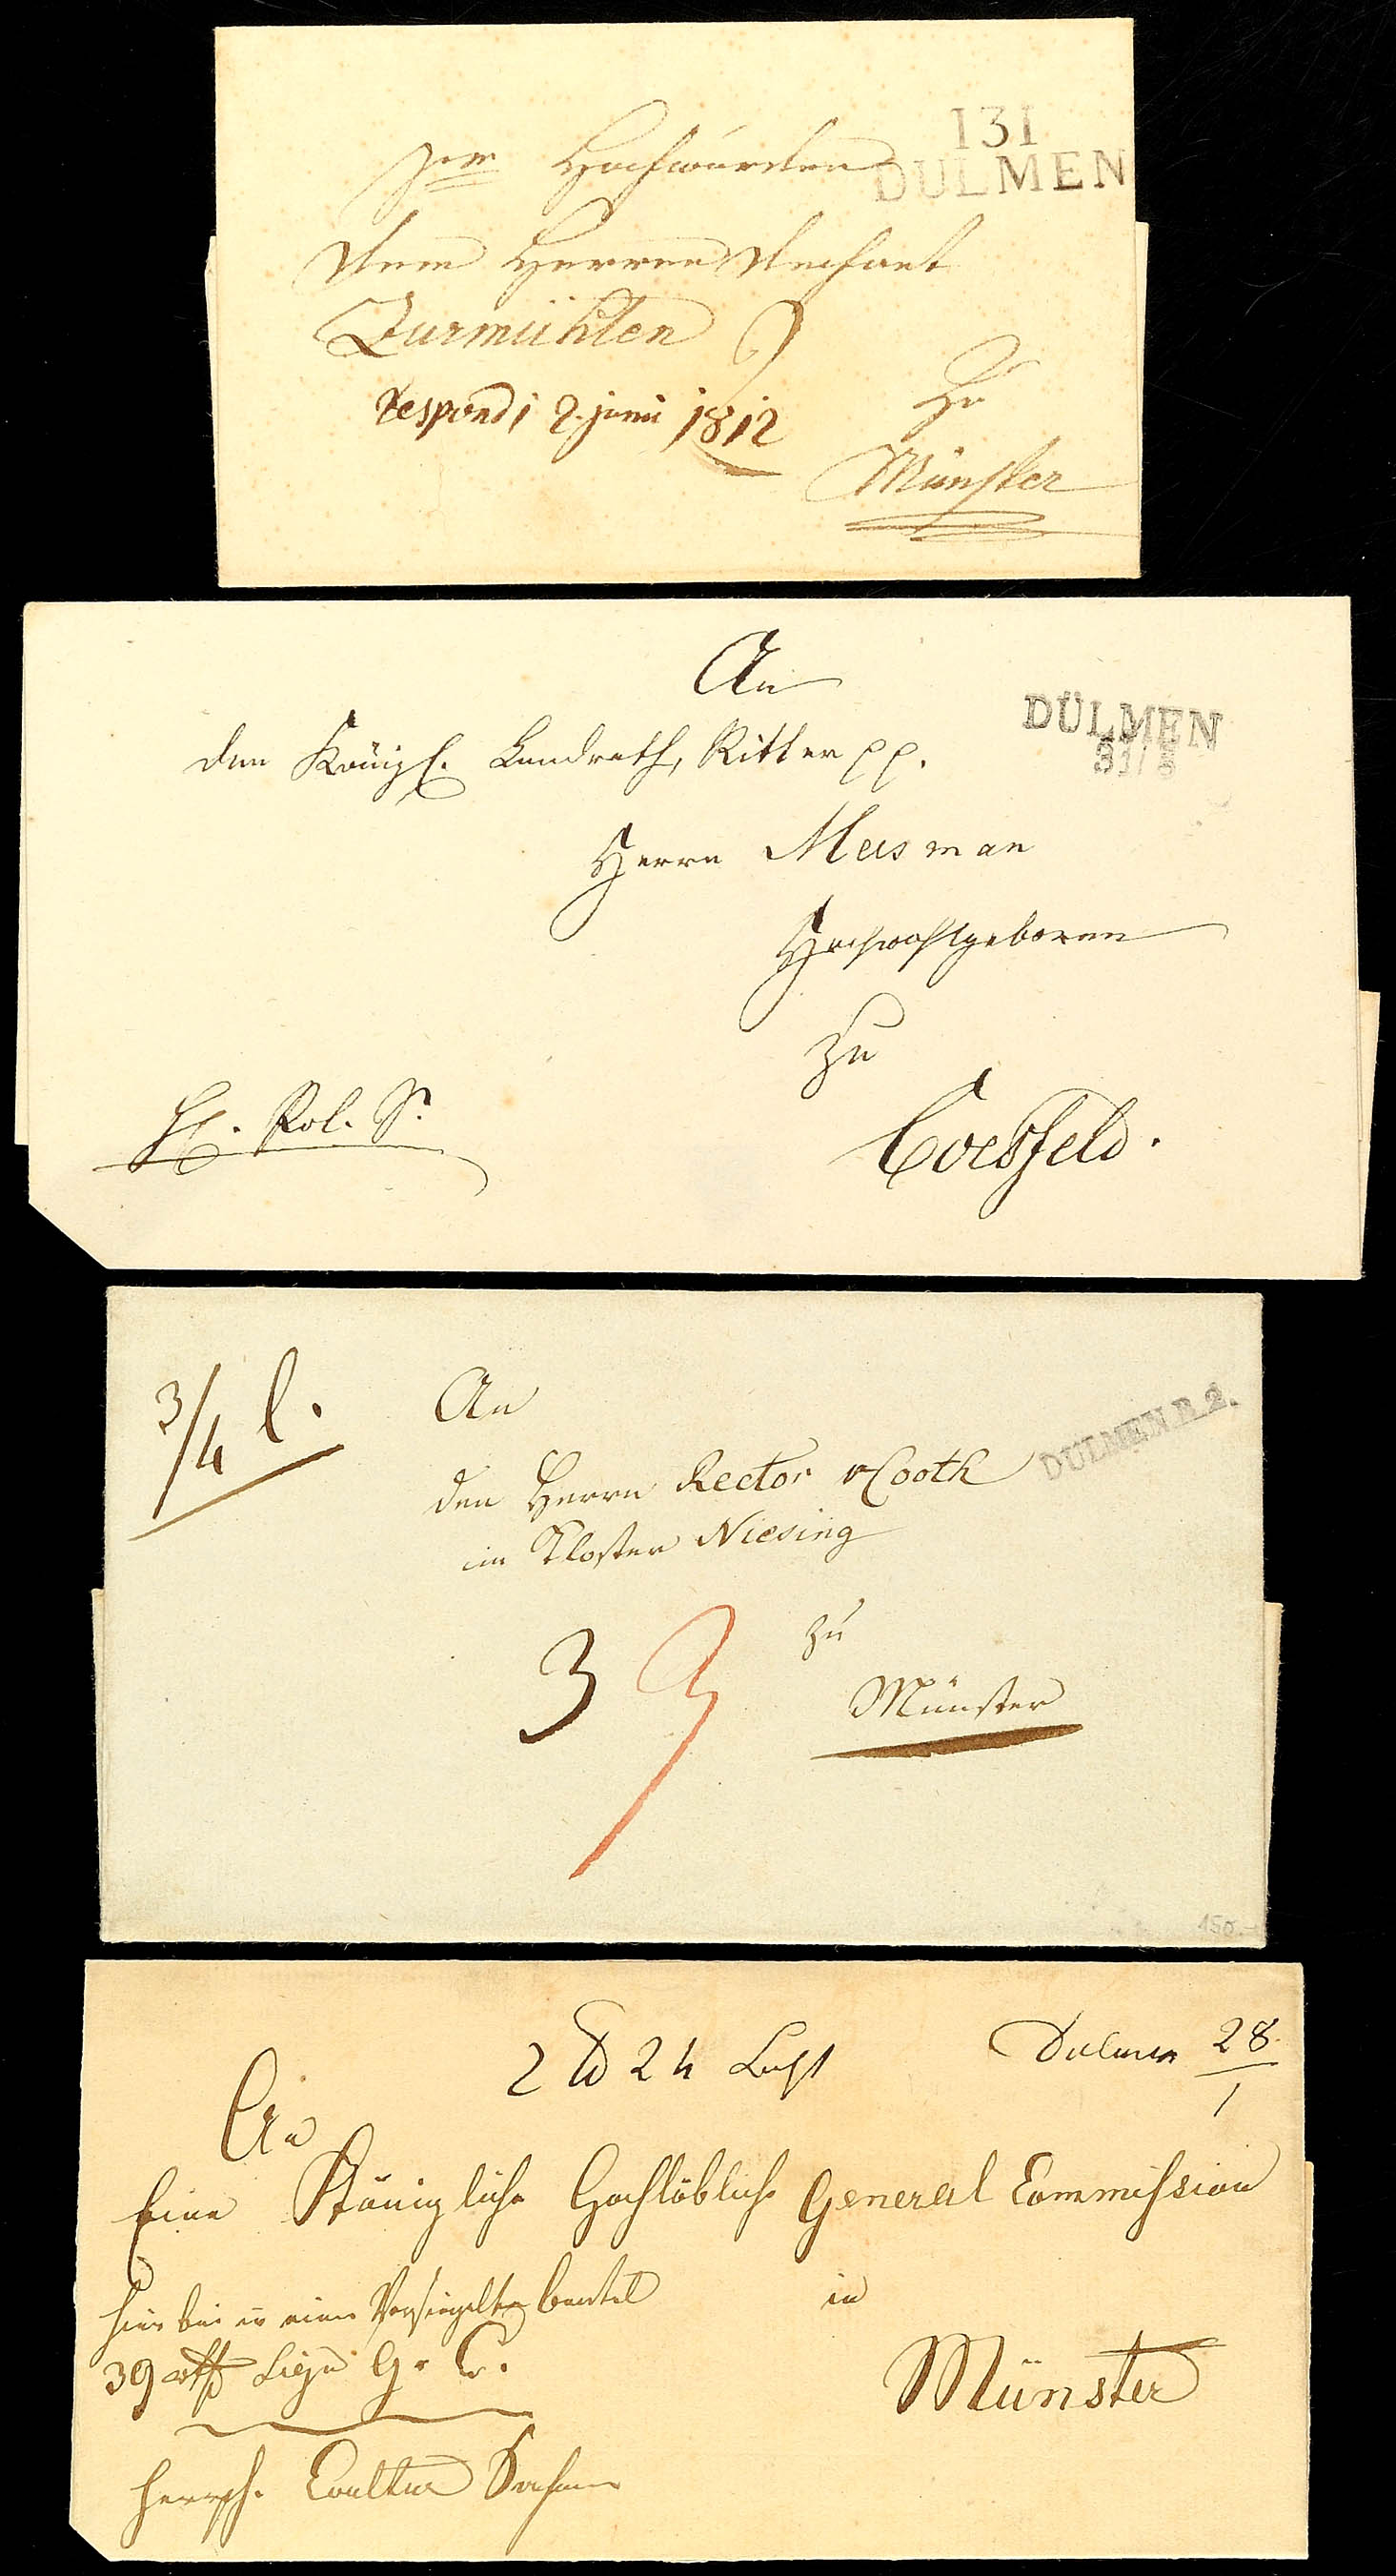 131
DULMEN
Hochwürden
dem Herren Dechant
Zurmühlen
zu
respondi 2. juni 1812
Münster
An
DÜLMEN
31/8
den Königl. Landrath, Ritter pp.
Herrn Mersmann
Hochwohlgeboren
zu
H. Pol. S.
Coesfeld.
3/4 l.
An
DULMEN R.2.
den Herrn Rector Cooth
im Kloster Niesing
zu
3 3
Münster
150.-
2 24 Loth
Dulmen 28/1
An
Eine Königliche Hochlöbliche General Commission
hier bei in einem Versiegelten beutel
in
39 Sign G. C.
Münster
Herrsch. Sachen